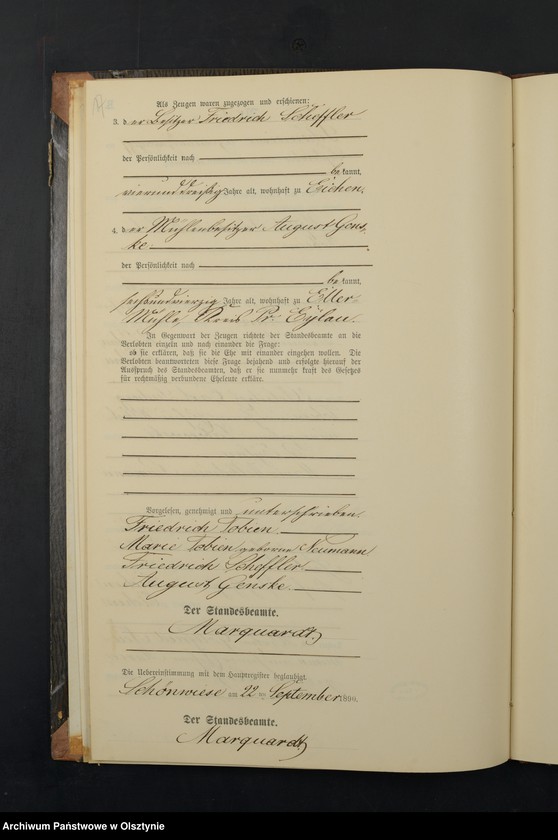 Als Zeugen waren zugezogen und erschienen:
3. der Besitzer Friedrich Scheffler
der Persönlichkeit nach
bekannt,
vierunddreißig Jahre alt, wohnhaft zu Eichen
4. der Mühlenbesitzer August Gens-
ke
der Persönlichkeit nach
bekannt,
sechsundvierzig Jahre alt, wohnhaft zu Eller-
Mühle, Kreis Pr. Eylau.
In Gegenwart der Zeugen richtete der Standesbeamte an die
Verlobten einzeln und nach einander die Frage:
ob sie erklären, daß sie die Ehe mit einander eingehen wollen. Die
Verlobten beantworteten diese Frage bejahend und erfolgte hierauf der
Ausspruch des Standesbeamten, daß er sie nunmehr kraft des Gesetzes
für rechtmäßig verbundene Eheleute erkläre.
Vorgelesen, genehmigt und unterschrieben
Friedrich Tobien
Marie Tobien geborne Neumann
Friedrich Scheffler
August Genske
Der Standesbeamte.
Marquardt.
Die Uebereinstimmung mit dem Hauptregister beglaubigt.
Schönwiese am 22 ten September 1890.
Der Standesbeamte.
Marquardt
Archiwum Państwowe w Olsztynie